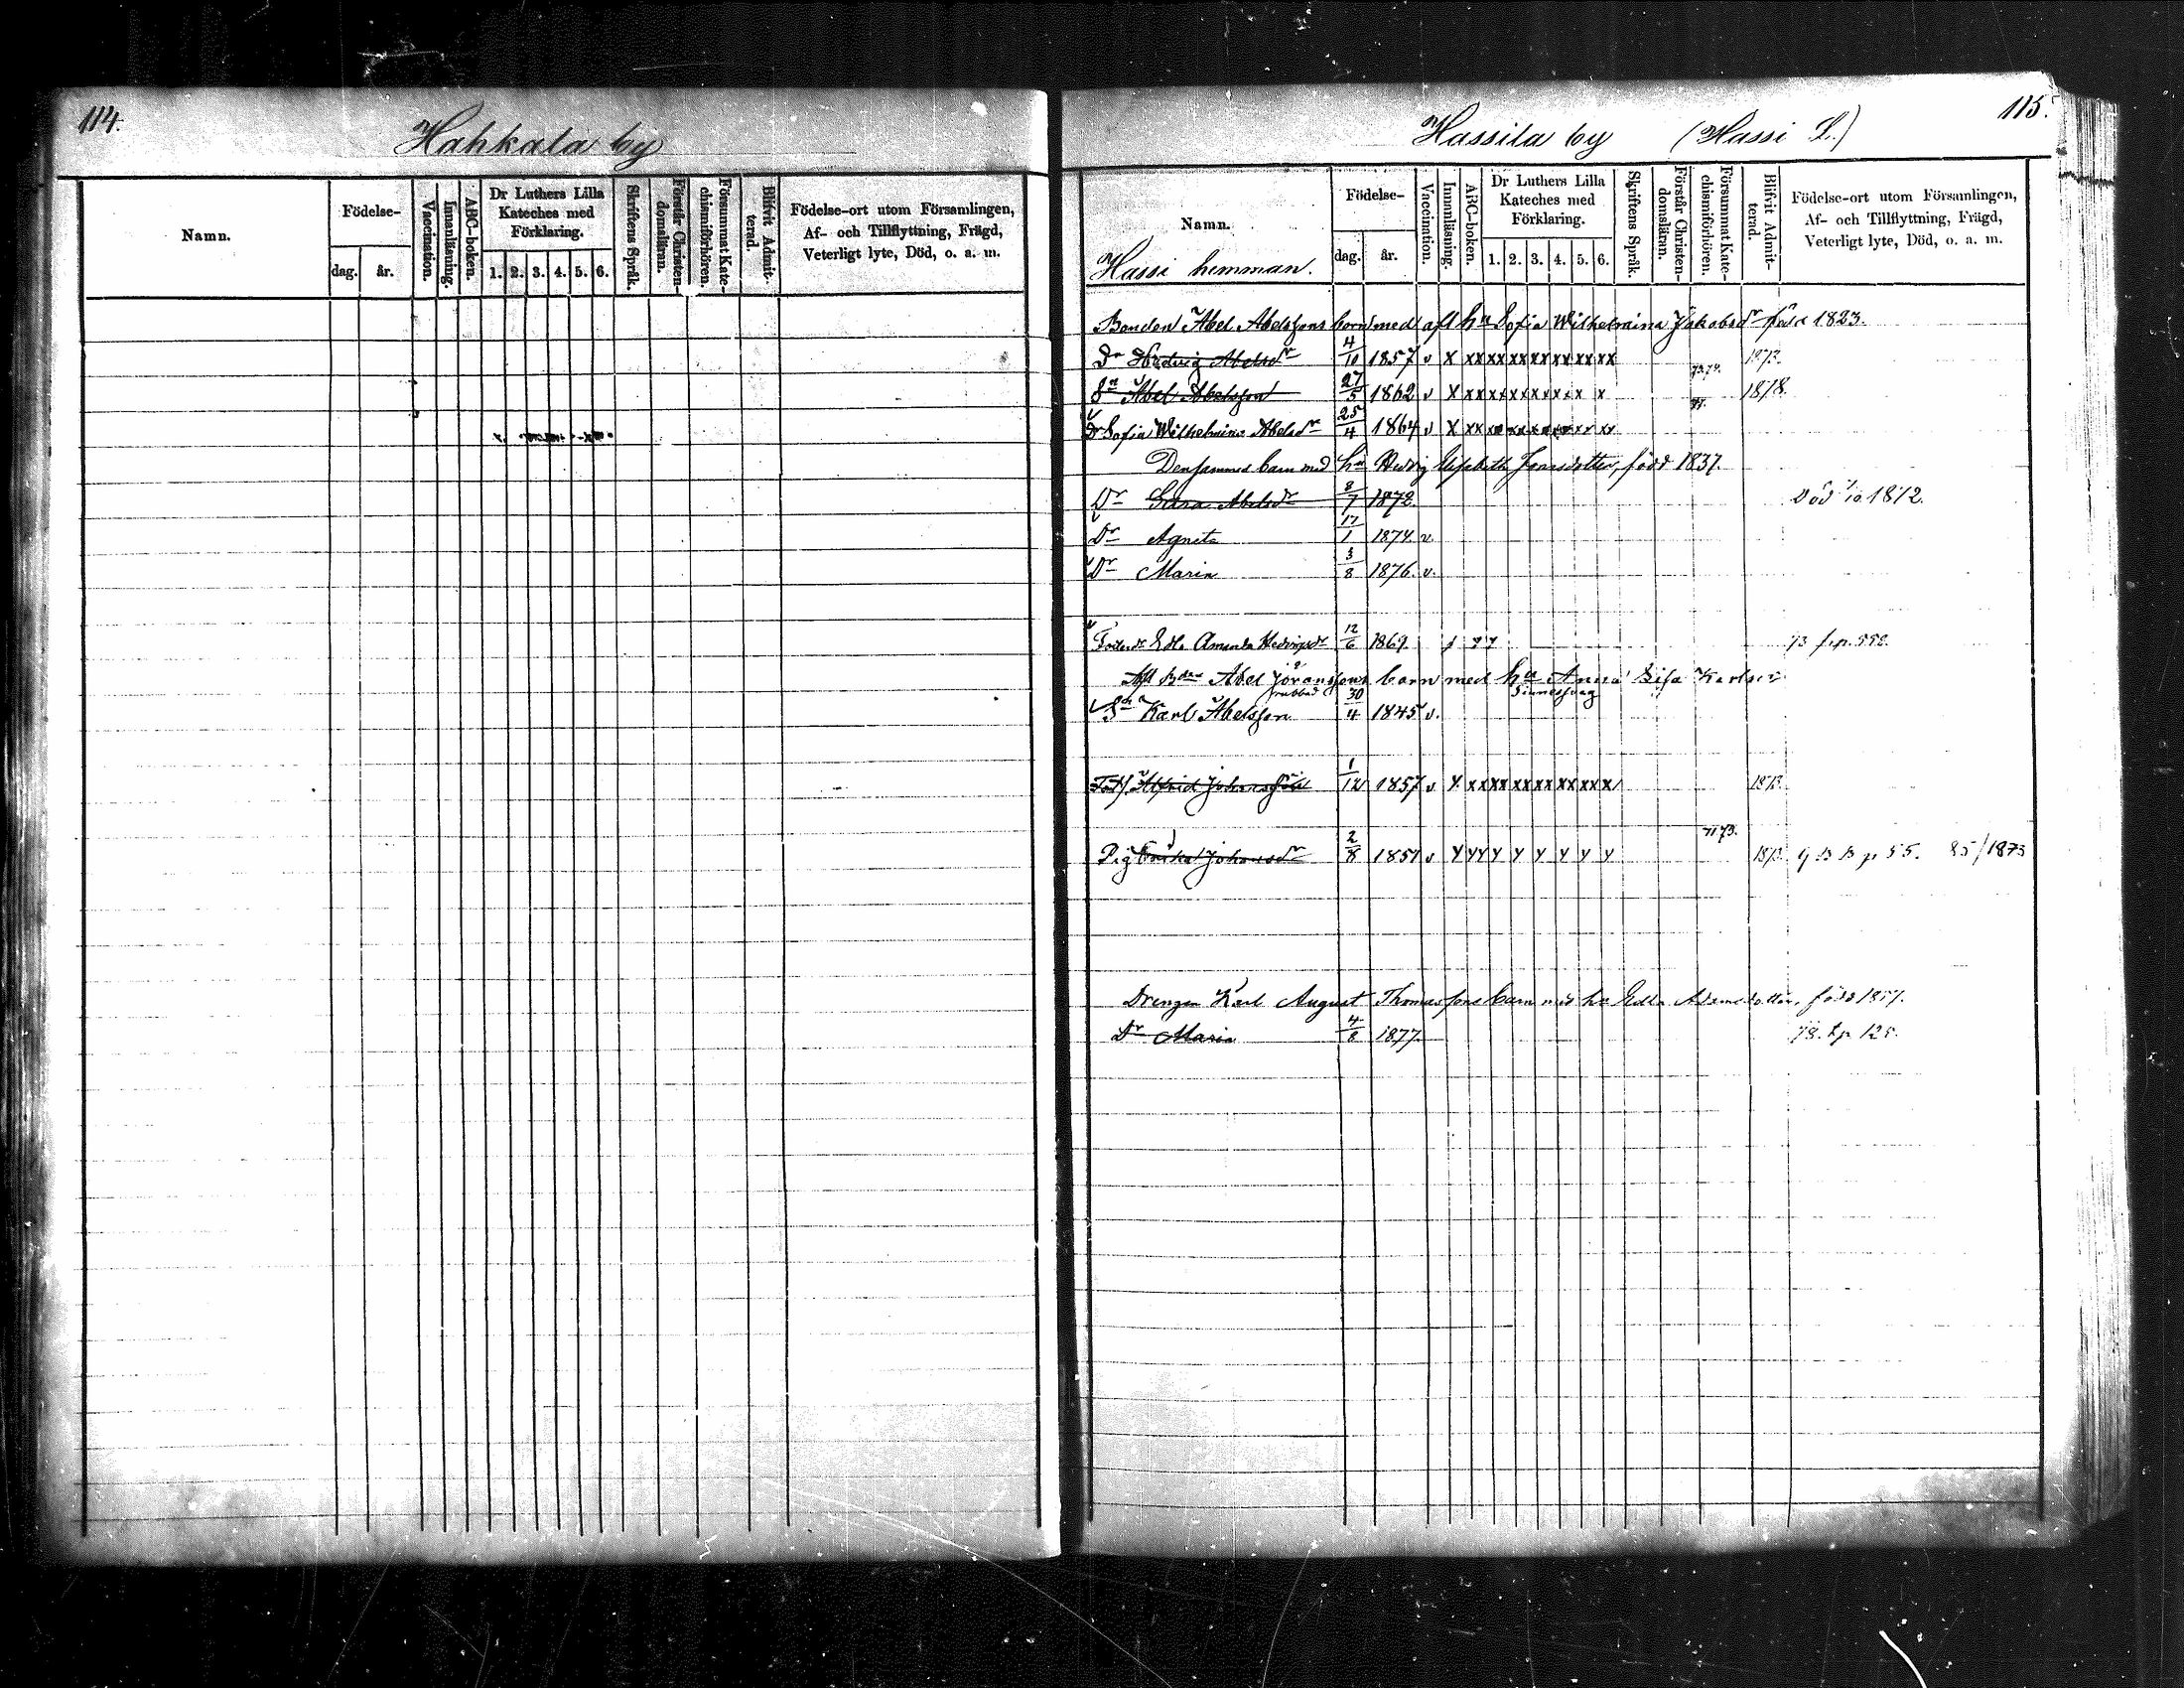 114.
Hahkala by
Namn.
Födelse-
dag. år.
Vaccination.
Innanläsning.
ABC-boken.
Dr Luthers Lilla Kateches med Förklaring.
1. 2. 3. 4. 5. 6.
Skriftens Språk.
Förstår Christendomsläran.
Försummat Katechismiförhören.
Blifvit Admitterad.
Födelse-ort utom Församlingen, Af- och Tillflyttning, Frägd, Veterligt lyte, Död, o. a. m.
115.
Hassila by (Hassi L.)
Namn.
Hassi hemman.
Födelse-
dag. år.
Vaccination.
Innanläsning.
ABC-boken.
Dr Luthers Lilla Kateches med Förklaring.
1. 2. 3. 4. 5. 6.
Skriftens Språk.
Förstår Christendomsläran.
Försummat Katechismiförhören.
Blifvit Admitterad.
Födelse-ort utom Församlingen, Af- och Tillflyttning, Frägd, Veterligt lyte, Död, o. a. m.
Bonden Abel Abelssons barn med afl hu Sofia Wilhelmina Jakobsdr född 1823.
Dr Hedvig Abelsdr 4/10 1857 v x xx xx xx xx xx xx xx 1873.
Sn Abel Abelsson 27/5 1862 v x 1878.
Dr Sofia Wilhelmina Abelsdr 25/4 1864 v x xx
Densammes barn med hu Hedvig Elisabeth Joansdotter, född 1837.
Dr Abelsdr 8/7 1872. Död 1872.
Dr Agneta 17/1 1874 v.
Dr Maria 3/8 1876. v.
Edla Amanda 12/6 1869. 73 fr p. 552.
Afl Bdn Abel Göranssons barn med hu Anna Lisa Karlsdr
Sn Karl Abelsson 30/4 1845 v.
Alfrid Johansson 1/12 1857 v x xx xx xx xx xx xx x 1873.
Pig Johansdr 2/8 1851 v y yy y y y y y y 71 73. 1873. p 55. 85/1873
Drengen Karl August Thomassons barn med hu Edla Adamsdotter, född 1857.
Dr Maria 4/8 1877. 78. t.p. 125.